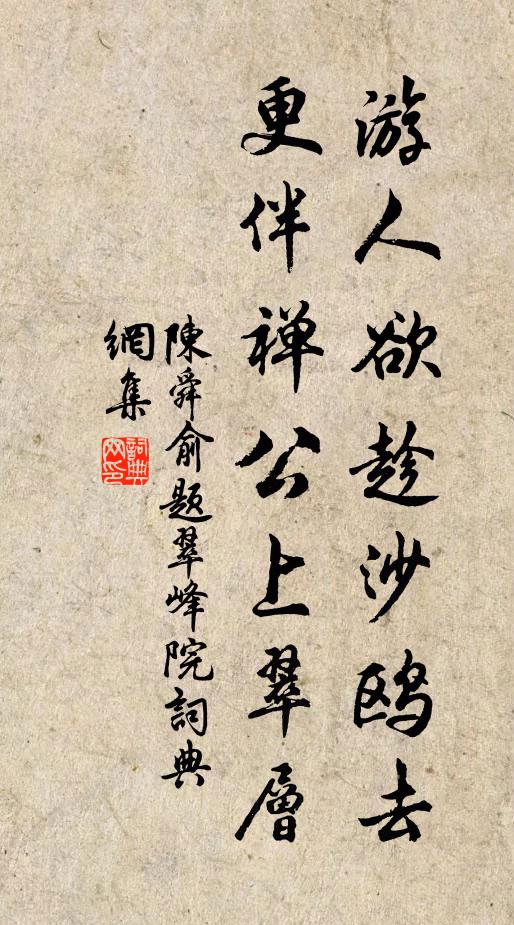 游人欲趁沙鸥去
更伴禅公上翠層
陳舜俞題翠峰院詞典
網集
詞典网印